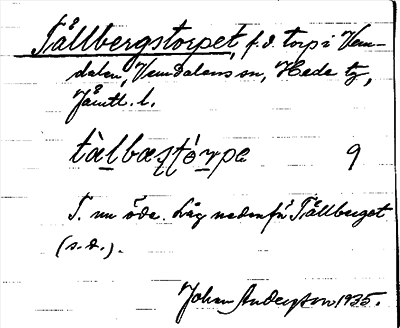 Tållbergstorpet, f.d. torp i Vem-
dalen, Vemdalens sn, Hede tg,
Jämtl. l.
tàlbæsʃtórpe 9
T. nu öde. Låg nedanför Tållberget
(s.d.).
Johan Anderzon 1935.